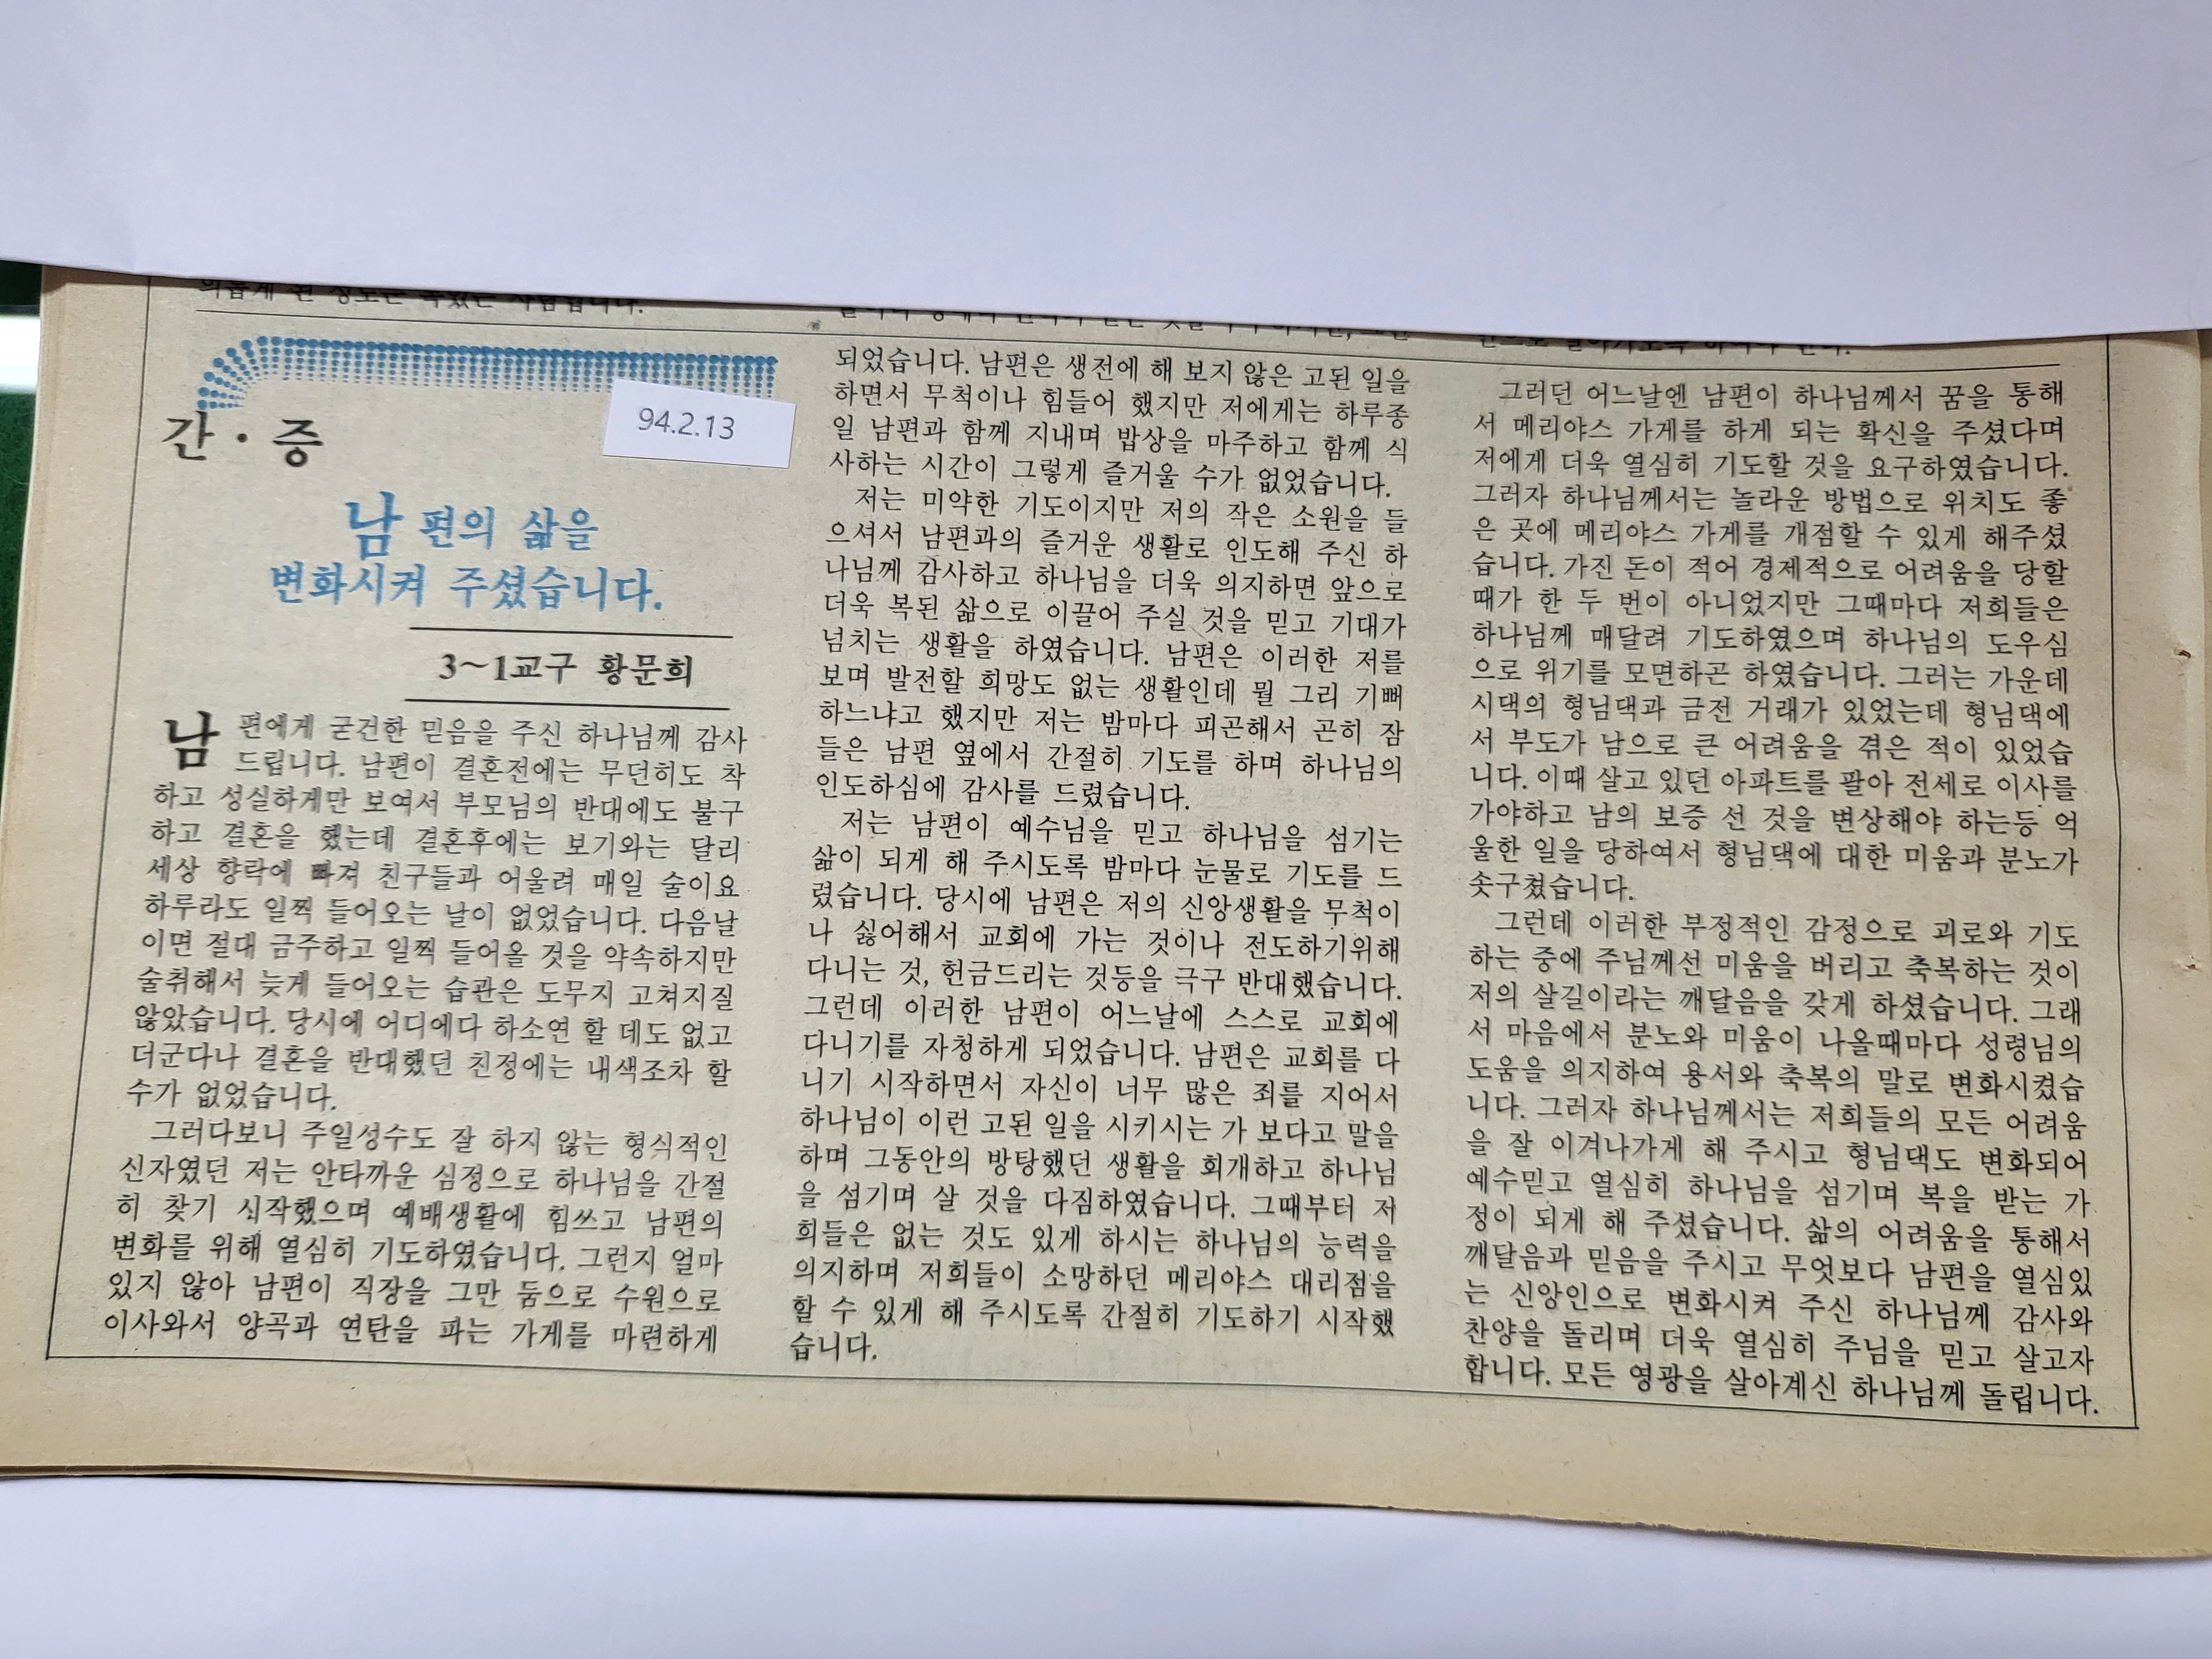 간·증
94.2.13
남편의 삶을
변화시켜 주셨습니다.
3~1교구 황문희
남편에게 굳건한 믿음을 주신 하나님께 감사
드립니다. 남편이 결혼전에는 무던히도 착
하고 성실하게만 보여서 부모님의 반대에도 불구
하고 결혼을 했는데 결혼후에는 보기와는 달리
세상 향락에 빠져 친구들과 어울려 매일 술이요
하루라도 일찍 들어오는 날이 없었습니다. 다음날
이면 절대 금주하고 일찍 들어올 것을 약속하지만
술취해서 늦게 들어오는 습관은 도무지 고쳐지질
않았습니다. 당시에 어디에다 하소연 할 데도 없고
더군다나 결혼을 반대했던 친정에는 내색조차 할
수가 없었습니다.
그러다보니 주일성수도 잘 하지 않는 형식적인
신자였던 저는 안타까운 심정으로 하나님을 간절
히 찾기 시작했으며 예배생활에 힘쓰고 남편의
변화를 위해 열심히 기도하였습니다. 그런지 얼마
있지 않아 남편이 직장을 그만 둠으로 수원으로
이사와서 양곡과 연탄을 파는 가게를 마련하게
되었습니다. 남편은 생전에 해 보지 않은 고된 일을
하면서 무척이나 힘들어 했지만 저에게는 하루종
일 남편과 함께 지내며 밥상을 마주하고 함께 식
사하는 시간이 그렇게 즐거울 수가 없었습니다.
저는 미약한 기도이지만 저의 작은 소원을 들
으셔서 남편과의 즐거운 생활로 인도해 주신 하
나님께 감사하고 하나님을 더욱 의지하면 앞으로
더욱 복된 삶으로 이끌어 주실 것을 믿고 기대가
넘치는 생활을 하였습니다. 남편은 이러한 저를
보며 발전할 희망도 없는 생활인데 뭘 그리 기뻐
하느냐고 했지만 저는 밤마다 피곤해서 곤히 잠
들은 남편 옆에서 간절히 기도를 하며 하나님의
인도하심에 감사를 드렸습니다.
저는 남편이 예수님을 믿고 하나님을 섬기는
삶이 되게 해 주시도록 밤마다 눈물로 기도를 드
렸습니다. 당시에 남편은 저의 신앙생활을 무척이
나 싫어해서 교회에 가는 것이나 전도하기위해
다니는 것, 헌금드리는 것등을 극구 반대했습니다.
그런데 이러한 남편이 어느날에 스스로 교회에
다니기를 자청하게 되었습니다. 남편은 교회를 다
니기 시작하면서 자신이 너무 많은 죄를 지어서
하나님이 이런 고된 일을 시키시는 가 보다고 말을
하며 그동안의 방탕했던 생활을 회개하고 하나님
을 섬기며 살 것을 다짐하였습니다. 그때부터 저
희들은 없는 것도 있게 하시는 하나님의 능력을
의지하며 저희들이 소망하던 메리야스 대리점을
할 수 있게 해 주시도록 간절히 기도하기 시작했
습니다.
그러던 어느날엔 남편이 하나님께서 꿈을 통해
서 메리야스 가게를 하게 되는 확신을 주셨다며
저에게 더욱 열심히 기도할 것을 요구하였습니다.
그러자 하나님께서는 놀라운 방법으로 위치도 좋
은 곳에 메리야스 가게를 개점할 수 있게 해주셨
습니다. 가진 돈이 적어 경제적으로 어려움을 당할
때가 한 두 번이 아니었지만 그때마다 저희들은
하나님께 매달려 기도하였으며 하나님의 도우심
으로 위기를 모면하곤 하였습니다. 그러는 가운데
시댁의 형님댁과 금전 거래가 있었는데 형님댁에
서 부도가 남으로 큰 어려움을 겪은 적이 있었습
니다. 이때 살고 있던 아파트를 팔아 전세로 이사를
가야하고 남의 보증 선 것을 변상해야 하는등 억
울한 일을 당하여서 형님댁에 대한 미움과 분노가
솟구쳤습니다.
그런데 이러한 부정적인 감정으로 괴로와 기도
하는 중에 주님께선 미움을 버리고 축복하는 것이
저의 살길이라는 깨달음을 갖게 하셨습니다. 그래
서 마음에서 분노와 미움이 나올때마다 성령님의
도움을 의지하여 용서와 축복의 말로 변화시켰습
니다. 그러자 하나님께서는 저희들의 모든 어려움
을 잘 이겨나가게 해 주시고 형님댁도 변화되어
예수믿고 열심히 하나님을 섬기며 복을 받는 가
정이 되게 해 주셨습니다. 삶의 어려움을 통해서
깨달음과 믿음을 주시고 무엇보다 남편을 열심있
는 신앙인으로 변화시켜 주신 하나님께 감사와
찬양을 돌리며 더욱 열심히 주님을 믿고 살고자
합니다. 모든 영광을 살아계신 하나님께 돌립니다.